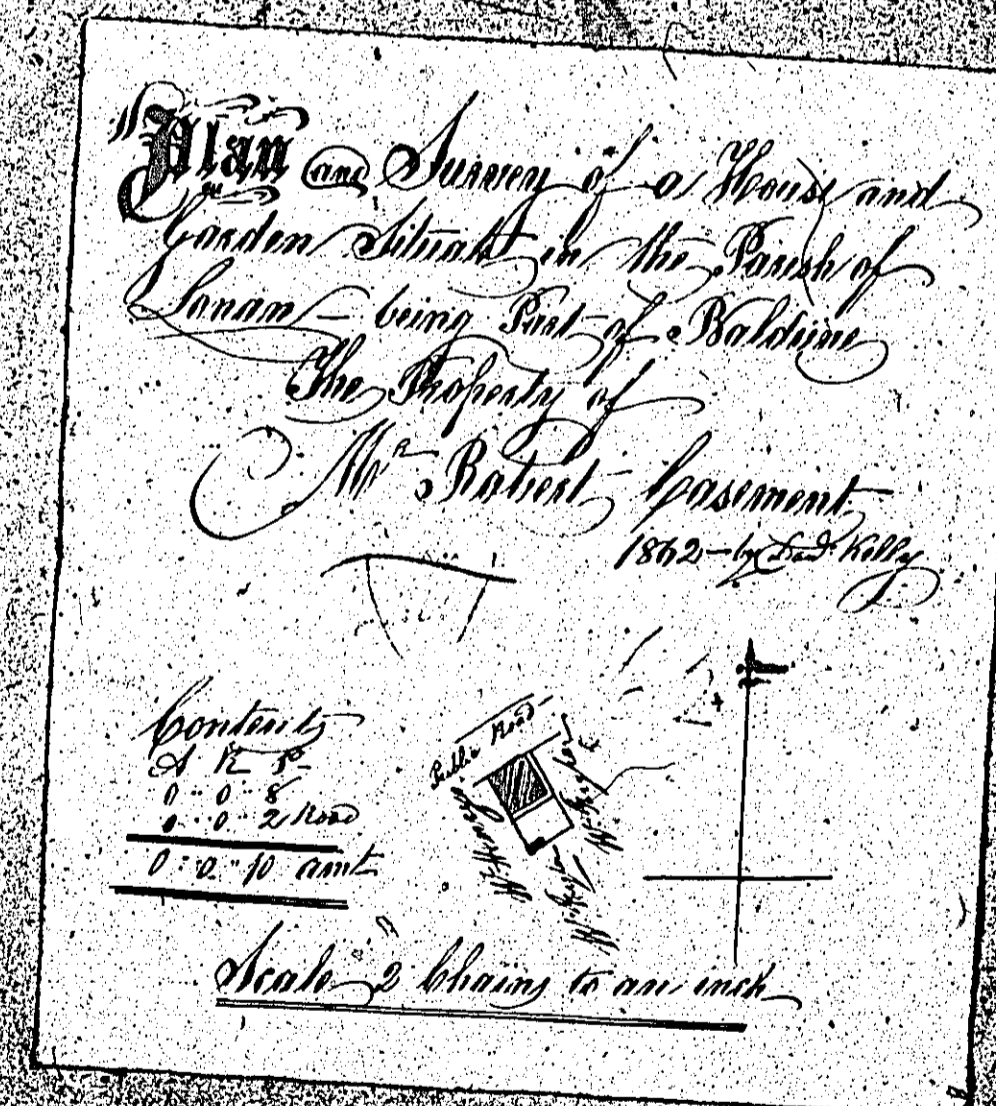 Plan and Survey of a House and
Garden Situate in the Parish of
Lonan – being Part of Baldrine
The Property of
Mr Robert Casement
1862 – by Kelly
Contents
A R P
0 " 0 " 8
0 " 0 " 2 Road
0 " 0 " 10 amt
Public Road
Scale 2 Chains to an inch